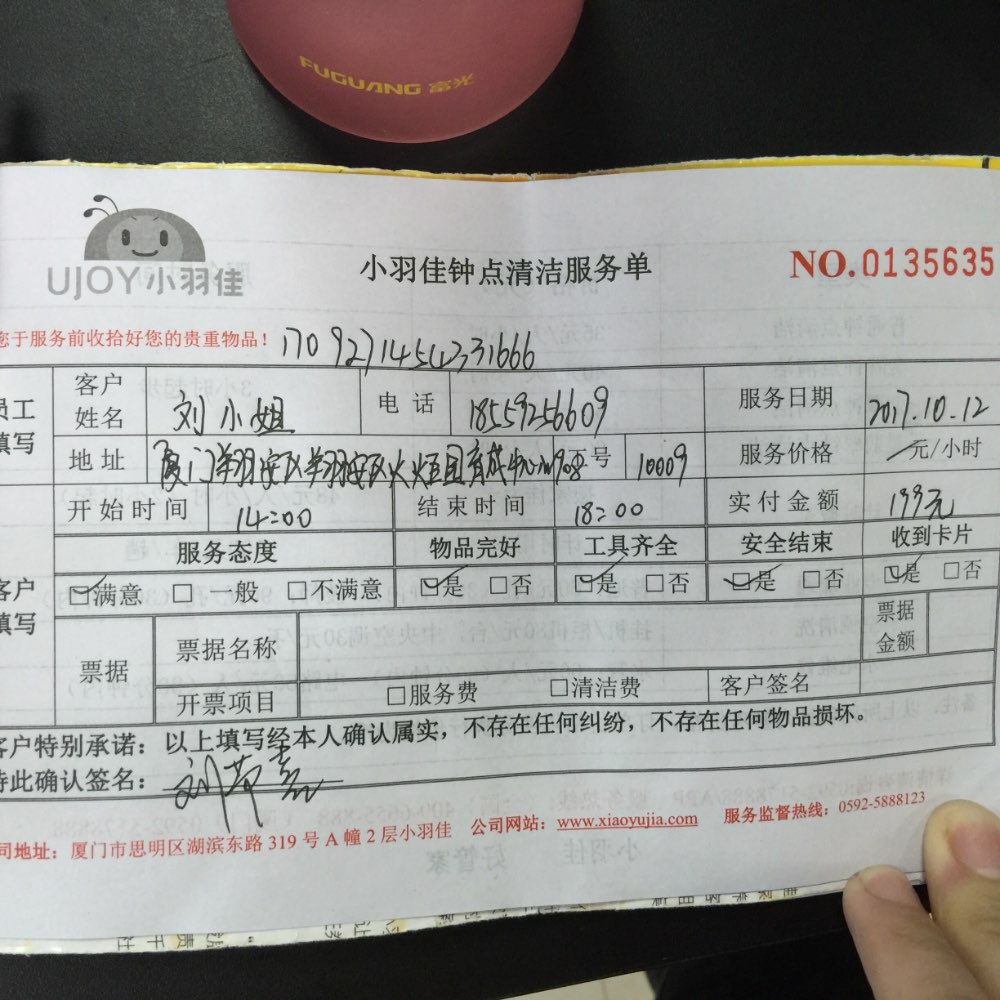 FUGUANG 富光
UJOY小羽佳
小羽佳钟点清洁服务单
NO.0135635
您于服务前收拾好您的贵重物品！
170927145433166​6
员工填写
客户姓名 刘小姐 电话 18559256609 服务日期 2017.10.12
地址 厦门翔安区翔安区火炬园育成中心 号 10009 服务价格 元/小时
开始时间 14:00 结束时间 18:00 实付金额 199元
客户填写
服务态度 物品完好 工具齐全 安全结束 收到卡片
☑满意 □一般 □不满意 ☑是 □否 ☑是 □否 ☑是 □否 ☑是 □否
票据 票据名称 票据金额
开票项目 □服务费 □清洁费 客户签名
客户特别承诺：以上填写经本人确认属实，不存在任何纠纷，不存在任何物品损坏。
特此确认签名：刘
司地址：厦门市思明区湖滨东路 319 号 A 幢 2 层小羽佳 公司网站：www.xiaoyujia.com 服务监督热线：0592-5888123